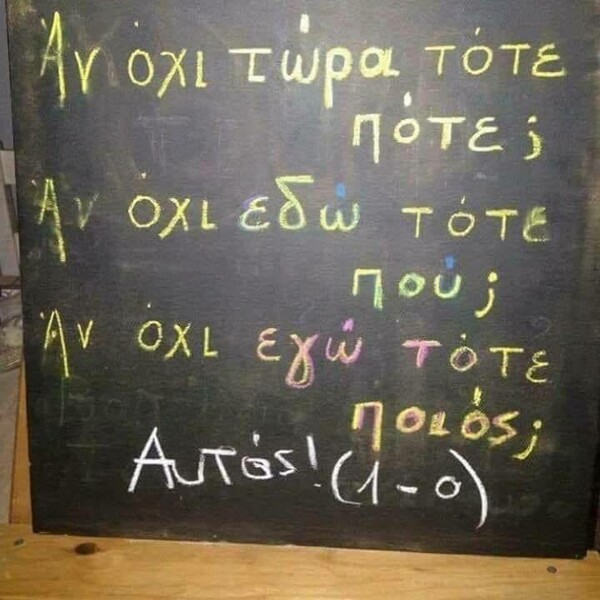 Ἀν όχι τώρα τότε
πότε;
Ἀν όχι εδώ τότε
πού;
Ἀν όχι εγώ τότε
ποιός;
Αυτός! (1-0)